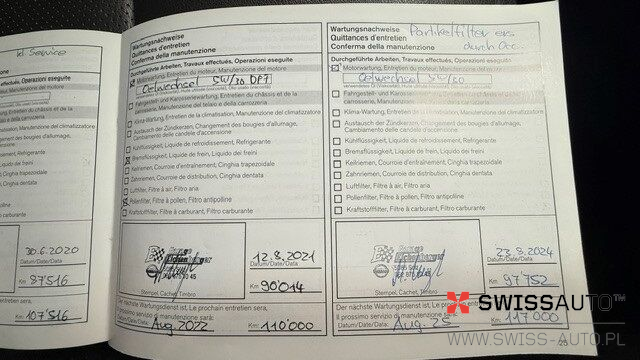 Service
30.6.2020
Datum/Date/Data
Km: 87516
entretien sera,
107'516
Wartungsnachweise
Quittances d'entretien
Conferma della manutenzione
Durchgeführte Arbeiten, Travaux effectués, Operazioni eseguite
Motorwartung, Entretien du moteur, Manutenzione del motore
Oelwechsel 5W/30 DPF
Fahrgestell- und Karosseriewartung, Entretien du châssis et de la
carrosserie, Manutenzione del telaio e della carrozzeria
Klima-Wartung, Entretien de la climatisation, Manutenzione del climatizzatore
Austausch der Zündkerzen, Changement des bougies d'allumage,
Cambiamento delle candele d'accensione
Kühlflüssigkeit, Liquide de refroidissement, Refrigerante
Bremsflüssigkeit, Liquide de frein, Liquido dei freini
Keilriemen, Courroie d'entraînement, Cinghia trapezoidale
Zahnriemen, Courroie de distribution, Cinghia dentata
Luftfilter, Filtre à air, Filtro aria
Pollenfilter, Filtre à pollen, Filtro antipolline
Kraftstofffilter, Filtre à carburant, Filtro carburante
12.8.2021
Datum/Date/Data
Km: 90'014
Stempel, Cachet, Timbro
Der nächste Wartungsdienst ist, Le prochain entretien sera,
Il prossimo servizio di manutenzione sarà:
Datum/Date/Data: Aug. 2022 Km: 110'000
Wartungsnachweise
Quittances d'entretien
Conferma della manutenzione
Partikelfilter
durch Occ.
Durchgeführte Arbeiten, Travaux effectués, Operazioni eseguite
Motorwartung, Entretien du moteur, Manutenzione del motore
Oelwechsel 5W/30
Fahrgestell- und Karosseriewartung, Entretien du châssis et de la
carrosserie, Manutenzione del telaio e della carrozzeria
Klima-Wartung, Entretien de la climatisation, Manutenzione del climatizzatore
Austausch der Zündkerzen, Changement des bougies d'allumage,
Cambiamento delle candele d'accensione
Kühlflüssigkeit, Liquide de refroidissement, Refrigerante
Bremsflüssigkeit, Liquide de frein, Liquido dei freini
Keilriemen, Courroie d'entraînement, Cinghia trapezoidale
Zahnriemen, Courroie de distribution, Cinghia dentata
Luftfilter, Filtre à air, Filtro aria
Pollenfilter, Filtre à pollen, Filtro antipolline
Kraftstofffilter, Filtre à carburant, Filtro carburante
23.8.2024
Datum/Date/Data
Km: 97'752
Stempel, Cachet, Timbro
Der nächste Wartungsdienst ist, Le prochain entretien sera,
Il prossimo servizio di manutenzione sarà:
Datum/Date/Data: Aug. 25 Km: 117'000
25
SWISSAUTO™
WWW.SWISSAUTO.PL